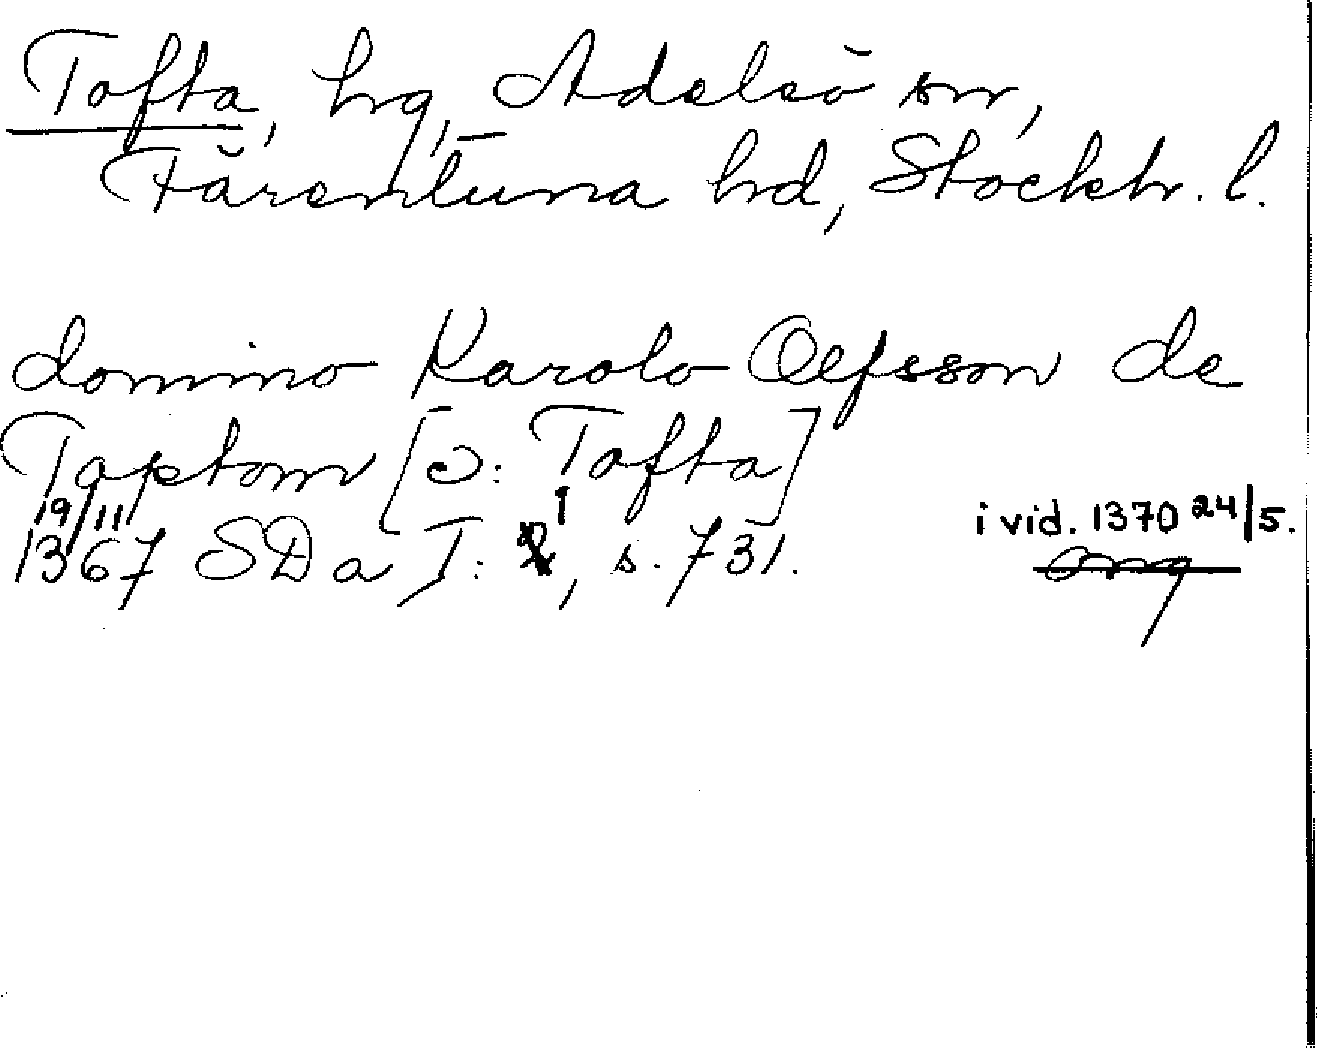 Tofta, hg, Adelsö sn,
Färentuna hd, Stockh. l.
domino Karolo Olefsson de
Toptom [ɔ: Tofta]
19/11 1367 SDa I: 1, s. 731. i vid. 1370 24/5.